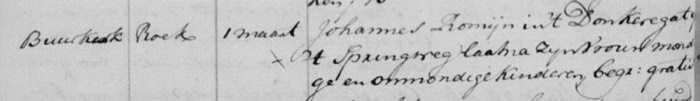 Buurkerk Roek 1 maart Johannes Romijn in't Donkeregat
't Springweg laat na zyn vrouw mondi
ge en onmondige kinderen, begr: gratis